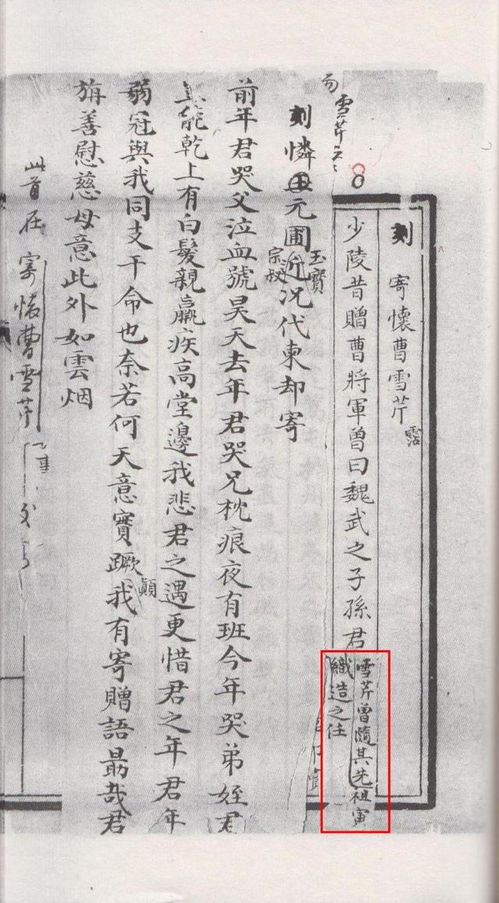 刻 寄懷曹雪芹 霑
少陵昔贈曹將軍曾曰魏武之子孫君
雪芹曾隨其先祖寅
織造之任
雪芹
刻 憐 元圃近況代柬却寄
前年君哭父泣血號昊天去年君哭兄枕痕夜有班今年哭弟姪君
能乾上有白髮親羸疾高堂邊我悲君之遇更惜君之年君年
弱冠與我同支干命也奈若何天意實蹶顛我有寄贈語最哉君
旃善慰慈母意此外如雲烟
此首在 寄懷曹雪芹